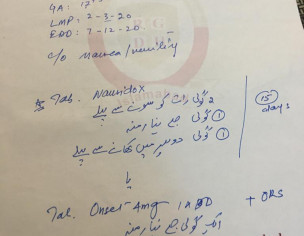 GA: 17
LMP: 2-3-20
EDD: 7-12-20
c/o nausea/vomiting
Tab. Nausidox
2 گولی رات کو سونے سے پہلے
① گولی صبح نہار منہ
① گولی دوپہر میں کھانے سے پہلے
15 days
یا
Tab. Onset 4mg 1 x BD + ORS
ایک گولی صبح نہار منہ